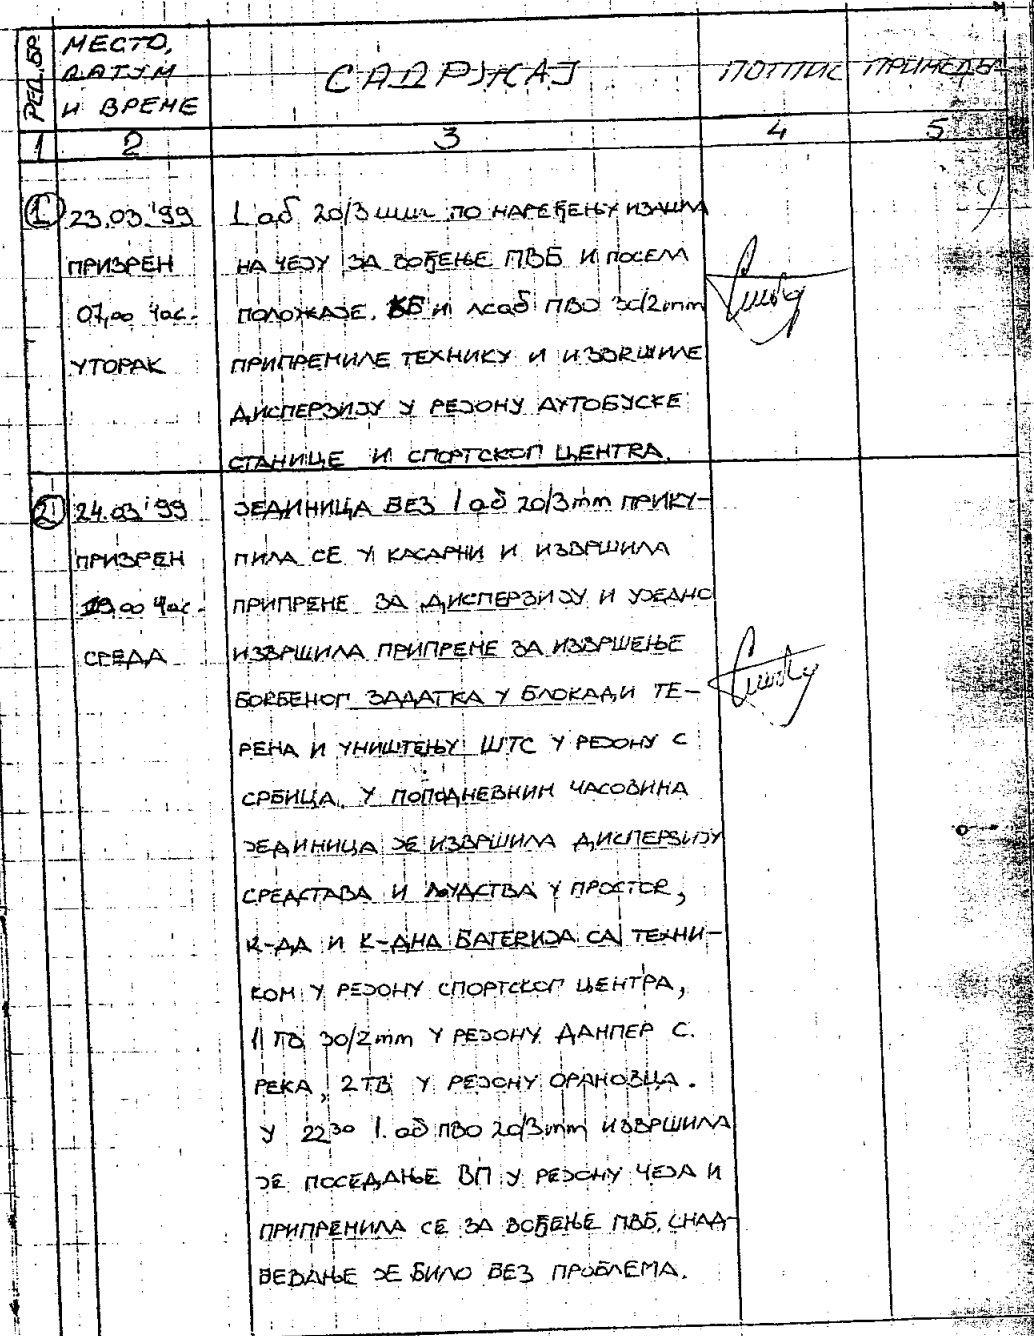 РЕД.БР
МЕСТО,
ДАТУМ
И ВРЕМЕ
САДРЖАЈ
ПОТПИС
ПРИМЕДБ
1 2 3 4 5
1 23.03.'99
ПРИЗРЕН
07,00 Час.
УТОРАК
1 аб 20/3 mm ПО НАРЕЂЕЊУ ИЗАШЛА
НА ЧЕЈУ ЗА ВОЂЕЊЕ ПВБ И ПОСЕЛА
ПОЛОЖАЈЕ. КБ И лсаб ПВО 30/2mm
ПРИПРЕМИЛЕ ТЕХНИКУ И ИЗВРШИЛЕ
ДИСПЕРЗИЈУ У РЕЈОНУ АУТОБУСКЕ
СТАНИЦЕ И СПОРТСКОГ ЦЕНТРА.
2 24.03'99
ПРИЗРЕН
00 Час.
СРЕДА
ЈЕДИНИЦА БЕЗ 1 аб 20/3mm ПРИКУ-
ПИЛА СЕ У КАСАРНИ И ИЗВРШИЛА
ПРИПРЕМЕ ЗА ДИСПЕРЗИЈУ И УЈЕДНО
ИЗВРШИЛА ПРИПРЕМЕ ЗА ИЗВРШЕЊЕ
БОРБЕНОГ ЗАДАТКА У БЛОКАДИ ТЕ-
РЕНА И УНИШТЕЊУ ШТС У РЕЈОНУ С
СРБИЦА. У ПОПОДНЕВНИМ ЧАСОВИМА
ЈЕДИНИЦА ЈЕ ИЗВРШИЛА ДИСПЕРЗИЈУ
СРЕДСТАВА И ЉУДСТВА У ПРОСТОР,
К-ДА И К-ДНА БАТЕРИЈА СА ТЕХНИ-
КОМ У РЕЈОНУ СПОРТСКОГ ЦЕНТРА,
1 ТВ 30/2mm У РЕЈОНУ ДАМПЕР С.
РЕКА, 2 ТВ У РЕЈОНУ ОРАНОВЦА.
У 22³⁰ 1. аб ПВО 20/3mm ИЗВРШИЛА
ЈЕ ПОСЕДАЊЕ ВП У РЕЈОНУ ЧЕЈА И
ПРИПРЕМИЛА СЕ ЗА ВОЂЕЊЕ ПВБ. СНАБ-
ДЕВАЊЕ ЈЕ БИЛО БЕЗ ПРОБЛЕМА.